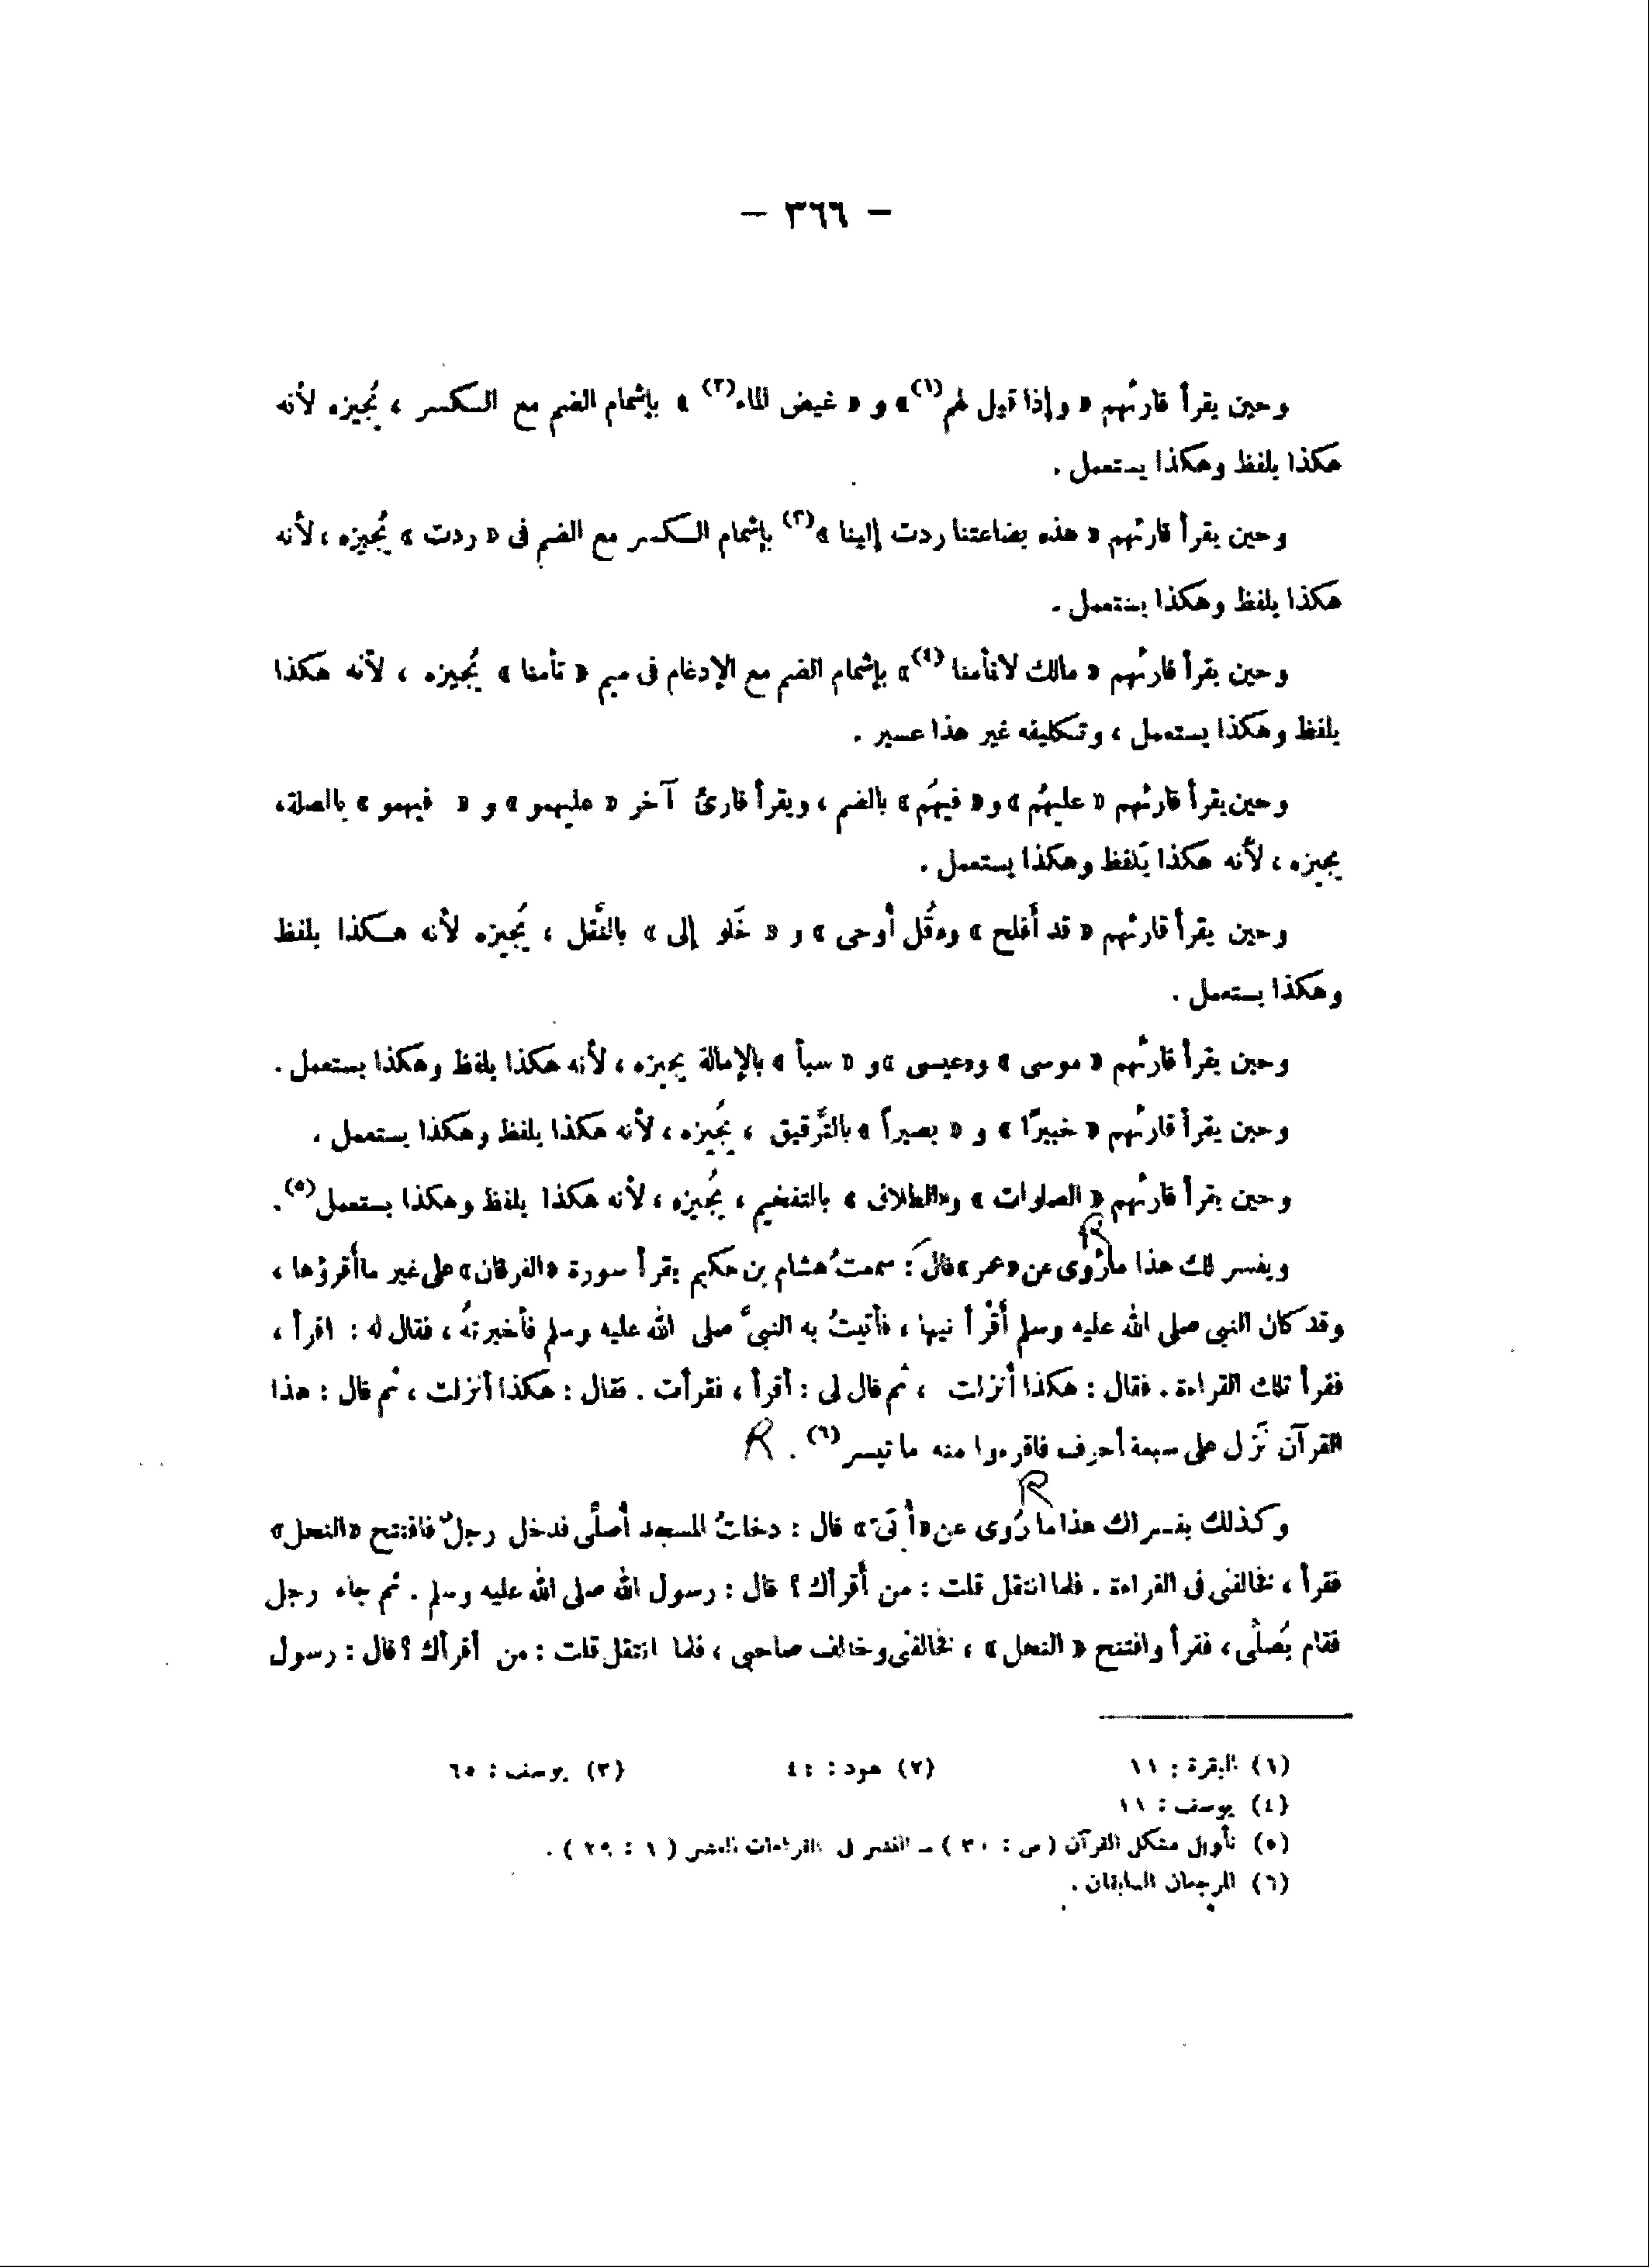 — ٣٦٦ —
وحين يقرأ قارئُهم « وإذا قيل لهم(١)» و « غيض الماء(٢) » بإشمام الضم مع الكسر ، نُجيزه لأنه
هكذا يلفظ وهكذا يستعمل .
وحين يقرأ قارئهم « هذه بضاعتنا ردت إلينا »(٣) بإشمام الكسر مع الضم فى « ردت » نُجيزه ، لأنه
هكذا يلفظ وهكذا يستعمل .
وحين يقرأ قارئُهم « مالك لا تأمنا (٤)» بإشمام الضم مع الإدغام فى ميم « تأمنا » نُجيزه ، لأنه هكذا
يلفظ وهكذا يستعمل ، وتكليفه غير هذا عسير .
وحين يقرأ قارئهم « عليهُم » و« فيهُم » بالضم ، ويقرأ قارئ آخر « عليهمو » و « فيهمو » بالصلة،
يجيزه ، لأنه هكذا يَلفظ وهكذا يستعمل .
وحين يقرأ قارئهم « قد أَفلح » و«قُل أُوحى » و « خَلو إلى » بالنَّقل ، نُجيزه لأنه هكذا يلفظ
وهكذا يستعمل .
وحين يقرأ قارئُهم « موسى » و«عيسى » و « سبأ » بالإمالة يجيزه ، لأنه هكذا يلفظ وهكذا يستعمل .
وحين يقرأ قارئُهم « خبيرًا » و « بصيراً » بالتَّرقيق ، نُجيزه ، لأنه هكذا يلفظ وهكذا يستعمل .
وحين يقرأ قارئُهم « الصلوات » و«الطلاق » بالتفخيم ، نُجيزه ، لأنه هكذا يلفظ وهكذا يستعمل(٥).
R
ويفسر لك هذا ما رُوى عن «عمر» قال : سمعتُ هشام بن حكيم يقرأ سورة «الفرقان» على غير ما أقرؤها ،
وقد كان النبى صلى الله عليه وسلم أَقْرأنيها ، فأتيتُ به النبىَّ صلى الله عليه وسلم فأخبرتهُ ، فقال له : اقرأ ،
فقرأ تلك القراءة . فقال : هكذا أنزلت ، ثم قال لى : أقرأ ، فقرأت . فقال : هكذا أنزلت ، ثم قال : هذا
القرآن نَزل على سبعة أحرف فاقرءوا منه ما تيسر(٦) . R
R
وكذلك يفسر لك هذا ما رُوى عن «أُبَىّ» قال : دخلتُ المسجد أُصلِّى فدخل رجلٌ فافتتح «النحل»
فقرأ ، فخالفنى فى القراءة . فلما انتقل قلت : من أَقرأك ؟ قال : رسول الله صلى الله عليه وسلم . ثم جاء رجل
فقام يُصلِّى، فقرأ وافتتح « النحل » ، فخالفنى وخالف صاحبى ، فلما انتقل قلت : من أقرأك ؟ قال : رسول
(١) البقرة : ١١ (٢) هود : ٤٤ (٣) يوسف : ٦٥
(٤) يوسف : ١١
(٥) تأويل مشكل القرآن ( ص : ٣٠ ) ــ النشر فى القراءات العشر ( ١ : ٢٩ ) .
(٦) المرجعان السابقان .